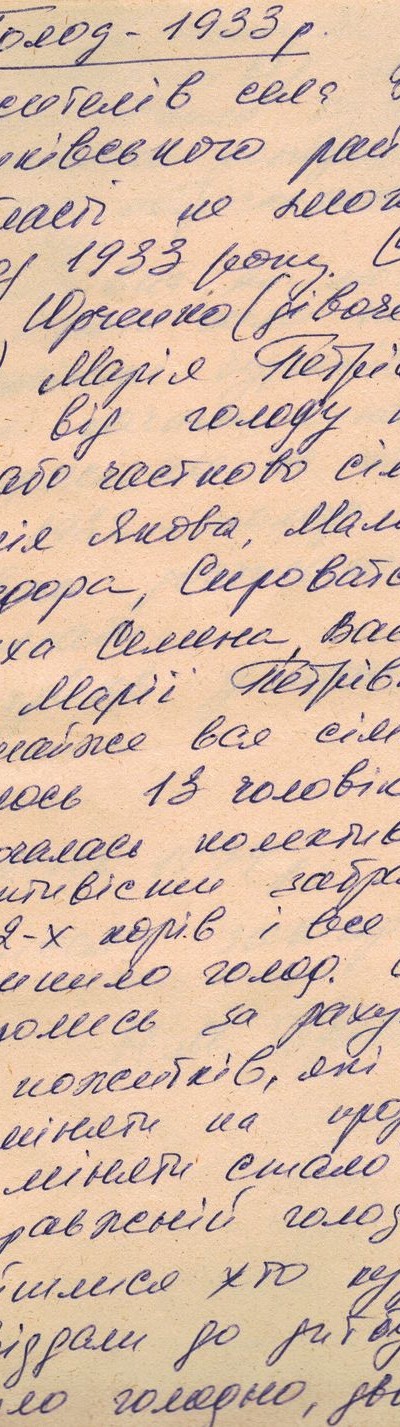 Голод - 1933 р.
жителів села
ківського рай
ласті не змог
од 1933 року.
Юрченко (дівоче
) Марія Петрів
від голоду
або частково сім
Якова, Мал
дора, Сироватс
ха Семена, Вас
Марії Петрів
майже вся сім
лось 13 чоловік
очалась колектив
ктивісти забра
2-х корів і все
чинило голод.
за раху
пожитків, які
міняти на про
міняти стало
равжній голод
йшлися хто ку
віддали до дитбу
ло голодно, дво